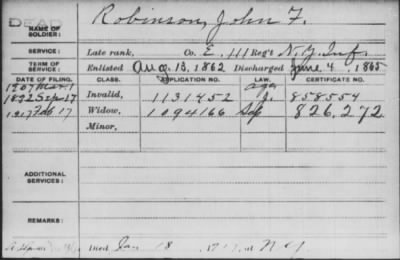 DEAD
NAME OF SOLDIER: Robinson, John F.
SERVICE: Late rank, Co. E, 111 Reg't N.Y. Inf.
TERM OF SERVICE: Enlisted Aug. 13, 1862 Discharged June 4, 1865
DATE OF FILING. CLASS. APPLICATION NO. LAW. CERTIFICATE NO.
1907 Mar. 1 age
1892 Sep 17 Invalid, 1131452 858554
1917 Feb 17 Widow, 1094166 Sep 826,272
Minor,
ADDITIONAL SERVICES:
REMARKS:
Died Jan 18 at N.Y.